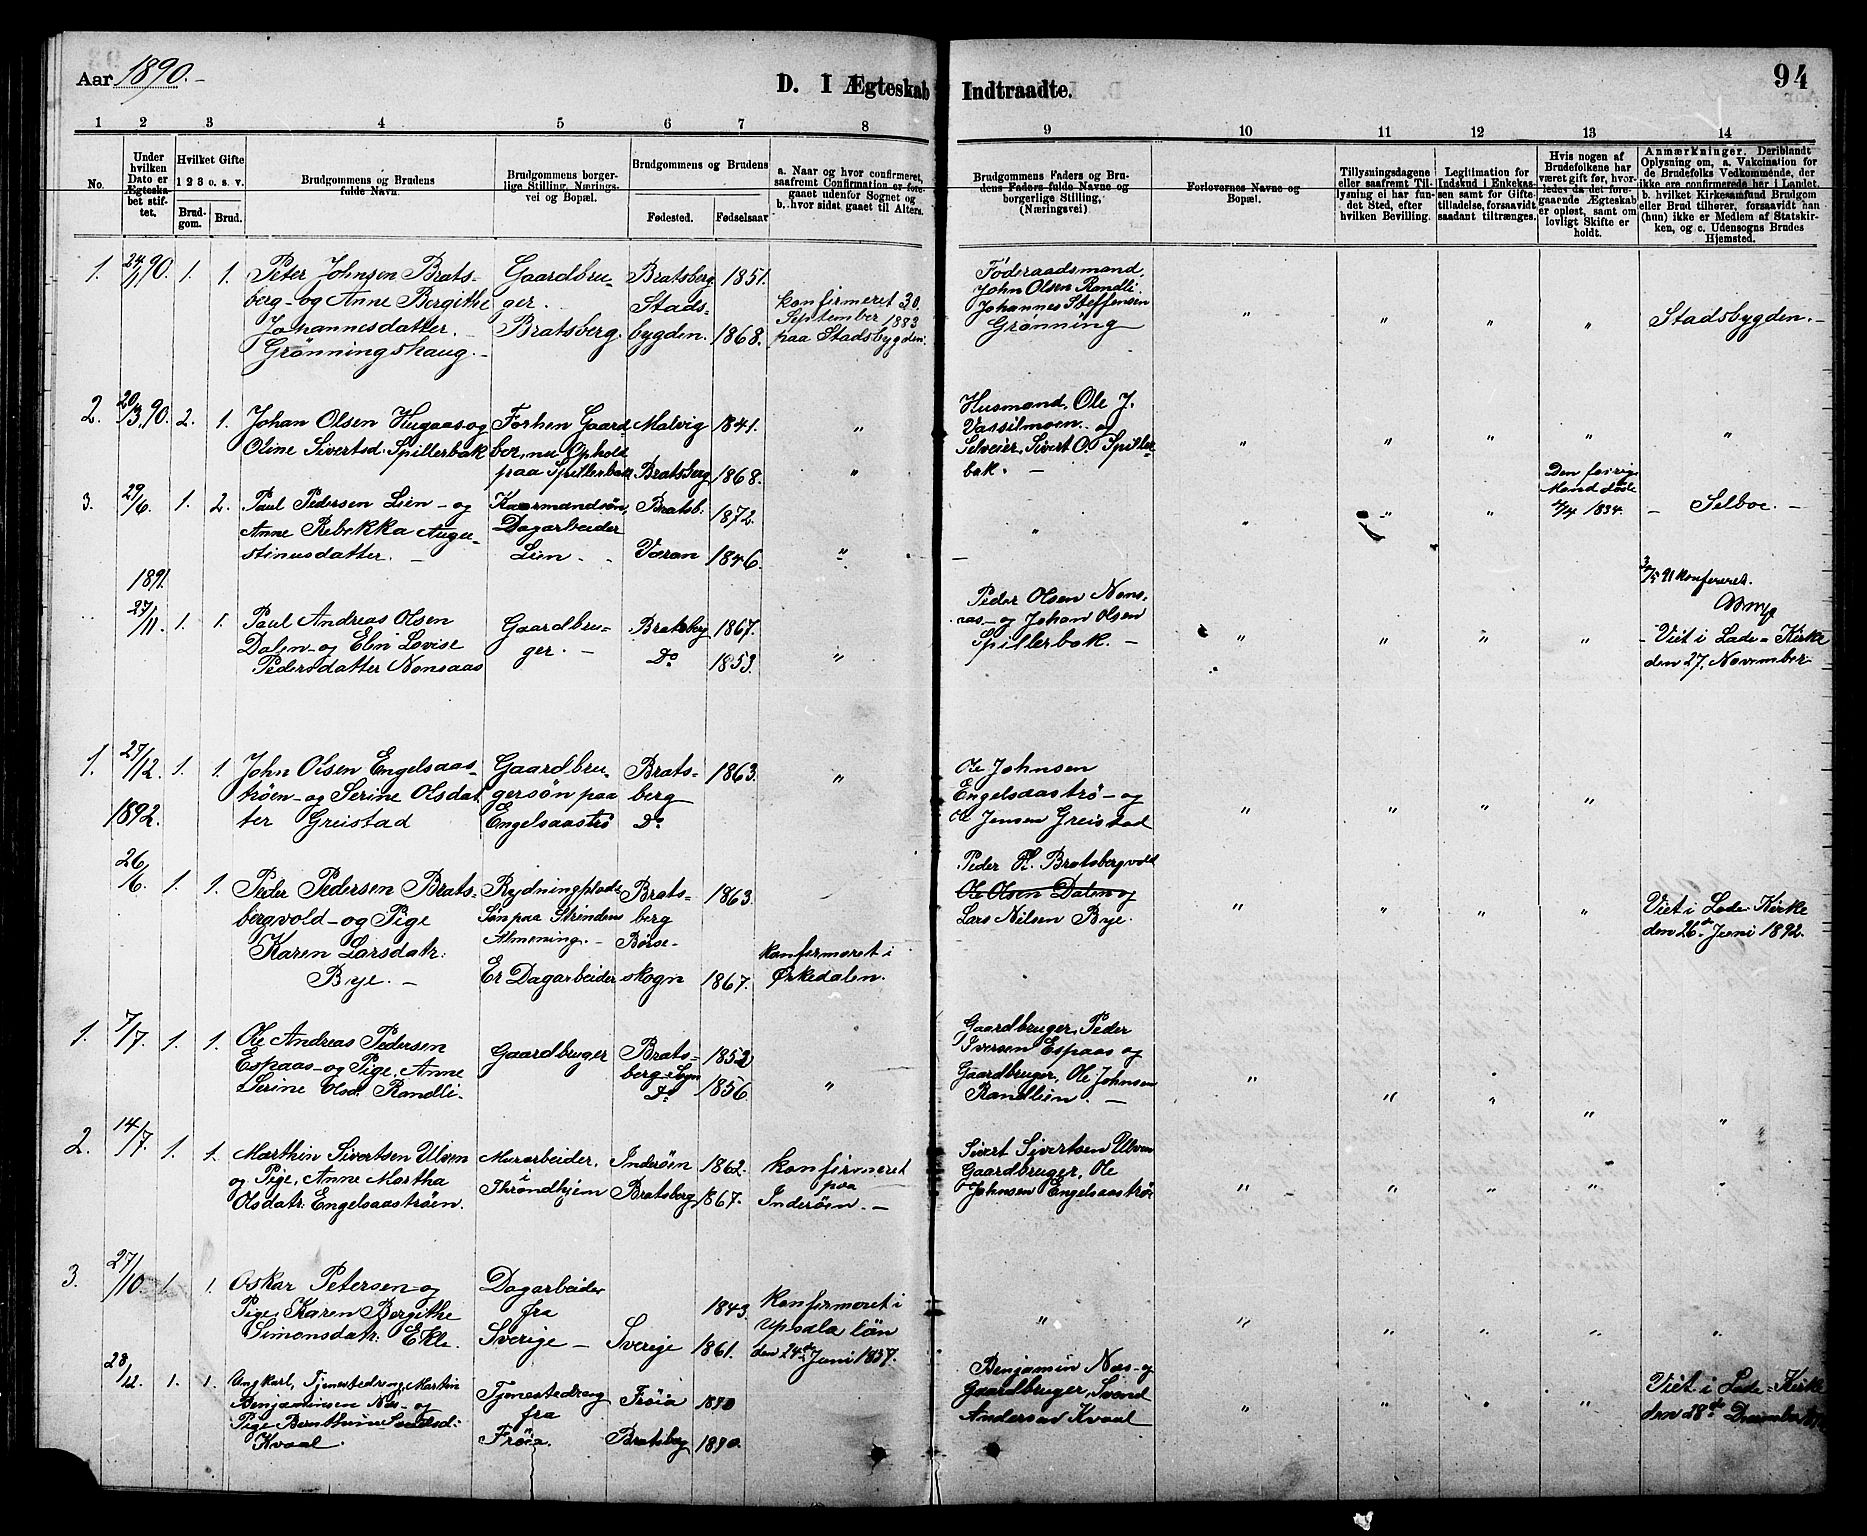 Aar 1890.-
D. I Ægteskab Indtraadte.
94
1 2 3 4 5 6 7 8 9 10 11 12 13 14
No.
Under hvilken Dato er Ægteskabet stiftet.
Hvilket Gifte 1 2 3 o. s. v.
Brudgom. Brud.
Brudgommens og Brudens fulde Navn.
Brudgommens borgerlige Stilling, Næringsvei og Bopæl.
Brudgommens og Brudens
Fødested. Fødselsaar
a. Naar og hvor confirmeret, saafremt Confirmation er foregaaet udenfor Sognet og b. hvor sidst gaaet til Alters.
Brudgommens Faders og Brudens Faders fulde Navne og borgerlige Stilling, (Næringsvei)
Forlovernes Navne og Bopæl.
Tillysningsdagene eller saafremt Tillysning ei har fundet Sted, efter hvilken Bevilling.
Legitimation for Indskud i Enkekassen samt for Giftetilladelse, forsaavidt saadant tiltrænges.
Hvis nogen af Brudefolkene har været gift før, hvorledes da det foregaaende Ægteskab er opløst, samt om lovligt Skifte er holdt.
Anmærkninger. Deriblandt Oplysning om, a. Vakcination for de Brudefolks Vedkommende, der ikke ere confirmerede her i Landet. b. hvilket Kirkesamfund Brudgom eller Brud tilhører, forsaavidt han (hun) ikke er Medlem af Statskirken, og c. Udensogns Brudes Hjemsted.
1. 24/1 90. 1. 1.
Peter Johnsen Brats-
berg - og Anne Bergithe
Johannesdatter.
Grønningshaug. -
Gaardbru-
ger.
Bratsberg.
Bratsberg 1851.
Stads-
bygden. 1868.
konfirmeret 30.
September 1883
paa Stadsbygden.
Føderaadsmand,
John Olsen Randli.
Johannes Steffensen
Grønning
" " " "
Stadsbygden. -
2. 20/3 90. 2. 1.
Johan Olsen Hugaas og
Oline Sivertsd. Spillerbak
Forhen Gaard
ber, nu Ophold
paa Spillerbak
Malvig 1841.
Bratsberg 1868.
"
"
Husmand, Ole J.
Vassilmoen. og
Selveier, Sivert O. Spiller-
bak. -
" " " " "
3. 29/6. 1. 2.
Paul Pedersen Lien - og
Anne Rebekka Augu-
stinusdatter. -
Kaarmandsøn,
Dagarbeider
Lien
Bratsb. 1872.
Væran 1846.
"
"
" " "
Den forrige
Mand døde
4/4 1834.
- Selboe. -
3/5 91 konfereret.
1891.
27/11. 1. 1.
Paul Andreas Olsen
Dalen - og Elin Lovise
Pedersdatter Nonsaas
Gaardbru-
ger. -
Bratsberg 1867.
Do 1853.
"
Peder Olsen Nons-
aas - og Johan Olsen
Spillerbak. -
" " " "
- Viet i Lade - Kirke
den 27. November
1. 27/12. 1. 1.
John Olsen Engelsaas-
trøen - og Serine Olsdat
ter Greistad
Gaardbru-
gersøn paa
Engelsaastrø
Brats-
berg
Do
1863.
"
Ole Johnsen
Engelsaastrø - og
Ole Jensen Greistad
" " " "
1892.
26/6. 1. 1.
Peder Pedersen Brats-
bergvold - og Pige
Karen Larsdatr.
Bye. -
Rydningplads-
Søn paa Strindens
Almening. -
Er Dagarbeider
Brats-
berg
Børse-
skogn
1863.
1867.
konfirmeret i
Ørkedalen.
Peder P. Bratsbergvold
Ole Olsen Dalen og
Lars Nilsen Bye.
" " " "
Viet i Lade Kirke
den 26de Juni 1892.
1. 7/7. 1. 1.
Ole Andreas Pedersen
Espaas - og Pige, Anne
Serine Olsd. Randli.
Gaardbruger
Brats-
berg Sogn
Do
1852
1856.
"
Gaardbruger, Peder
Iversen Espaas og
Gaardbruger, Ole Johnsen
Randlien. -
" " " " "
2. 14/7. 1. 1.
Marthin Sivertsen Ulven
og Pige, Anne Martha
Olsdatr. Engelsaastrøen.
Murarbeider,
i
Throndhjem
Inderøen 1862.
Bratsberg 1867.
konfirmeret
paa
Inderøen. -
Sivert Sivertsen Ulven
Gaardbruger, Ole
Johnsen Engelsaastrøe
" " " " "
3. 27/10. 1. 1.
Oskar Petersen - og
Pige, Karen Bergithe
Simonsdatr. Ekle.
Dagarbeider
fra
Sverige -
Sverige
1843.
1861.
konfirmeret i
Upsala län
den 24de Juni 1857.
" " " " " "
28/12. 1. 1.
Ungkarl, Tjenestedreng, Martin
Benjaminsen Næs - og
Pige Bernthine Svendsd.
Kvaal.
Tjenestedreng
fra
Frøia.
Frøia 1870
Bratsberg 1870.
Benjamin Næs - og
Gaardbruger, Svend
Andersen Kvaal
" " " "
Viet i Lade - Kirke
den 28de December